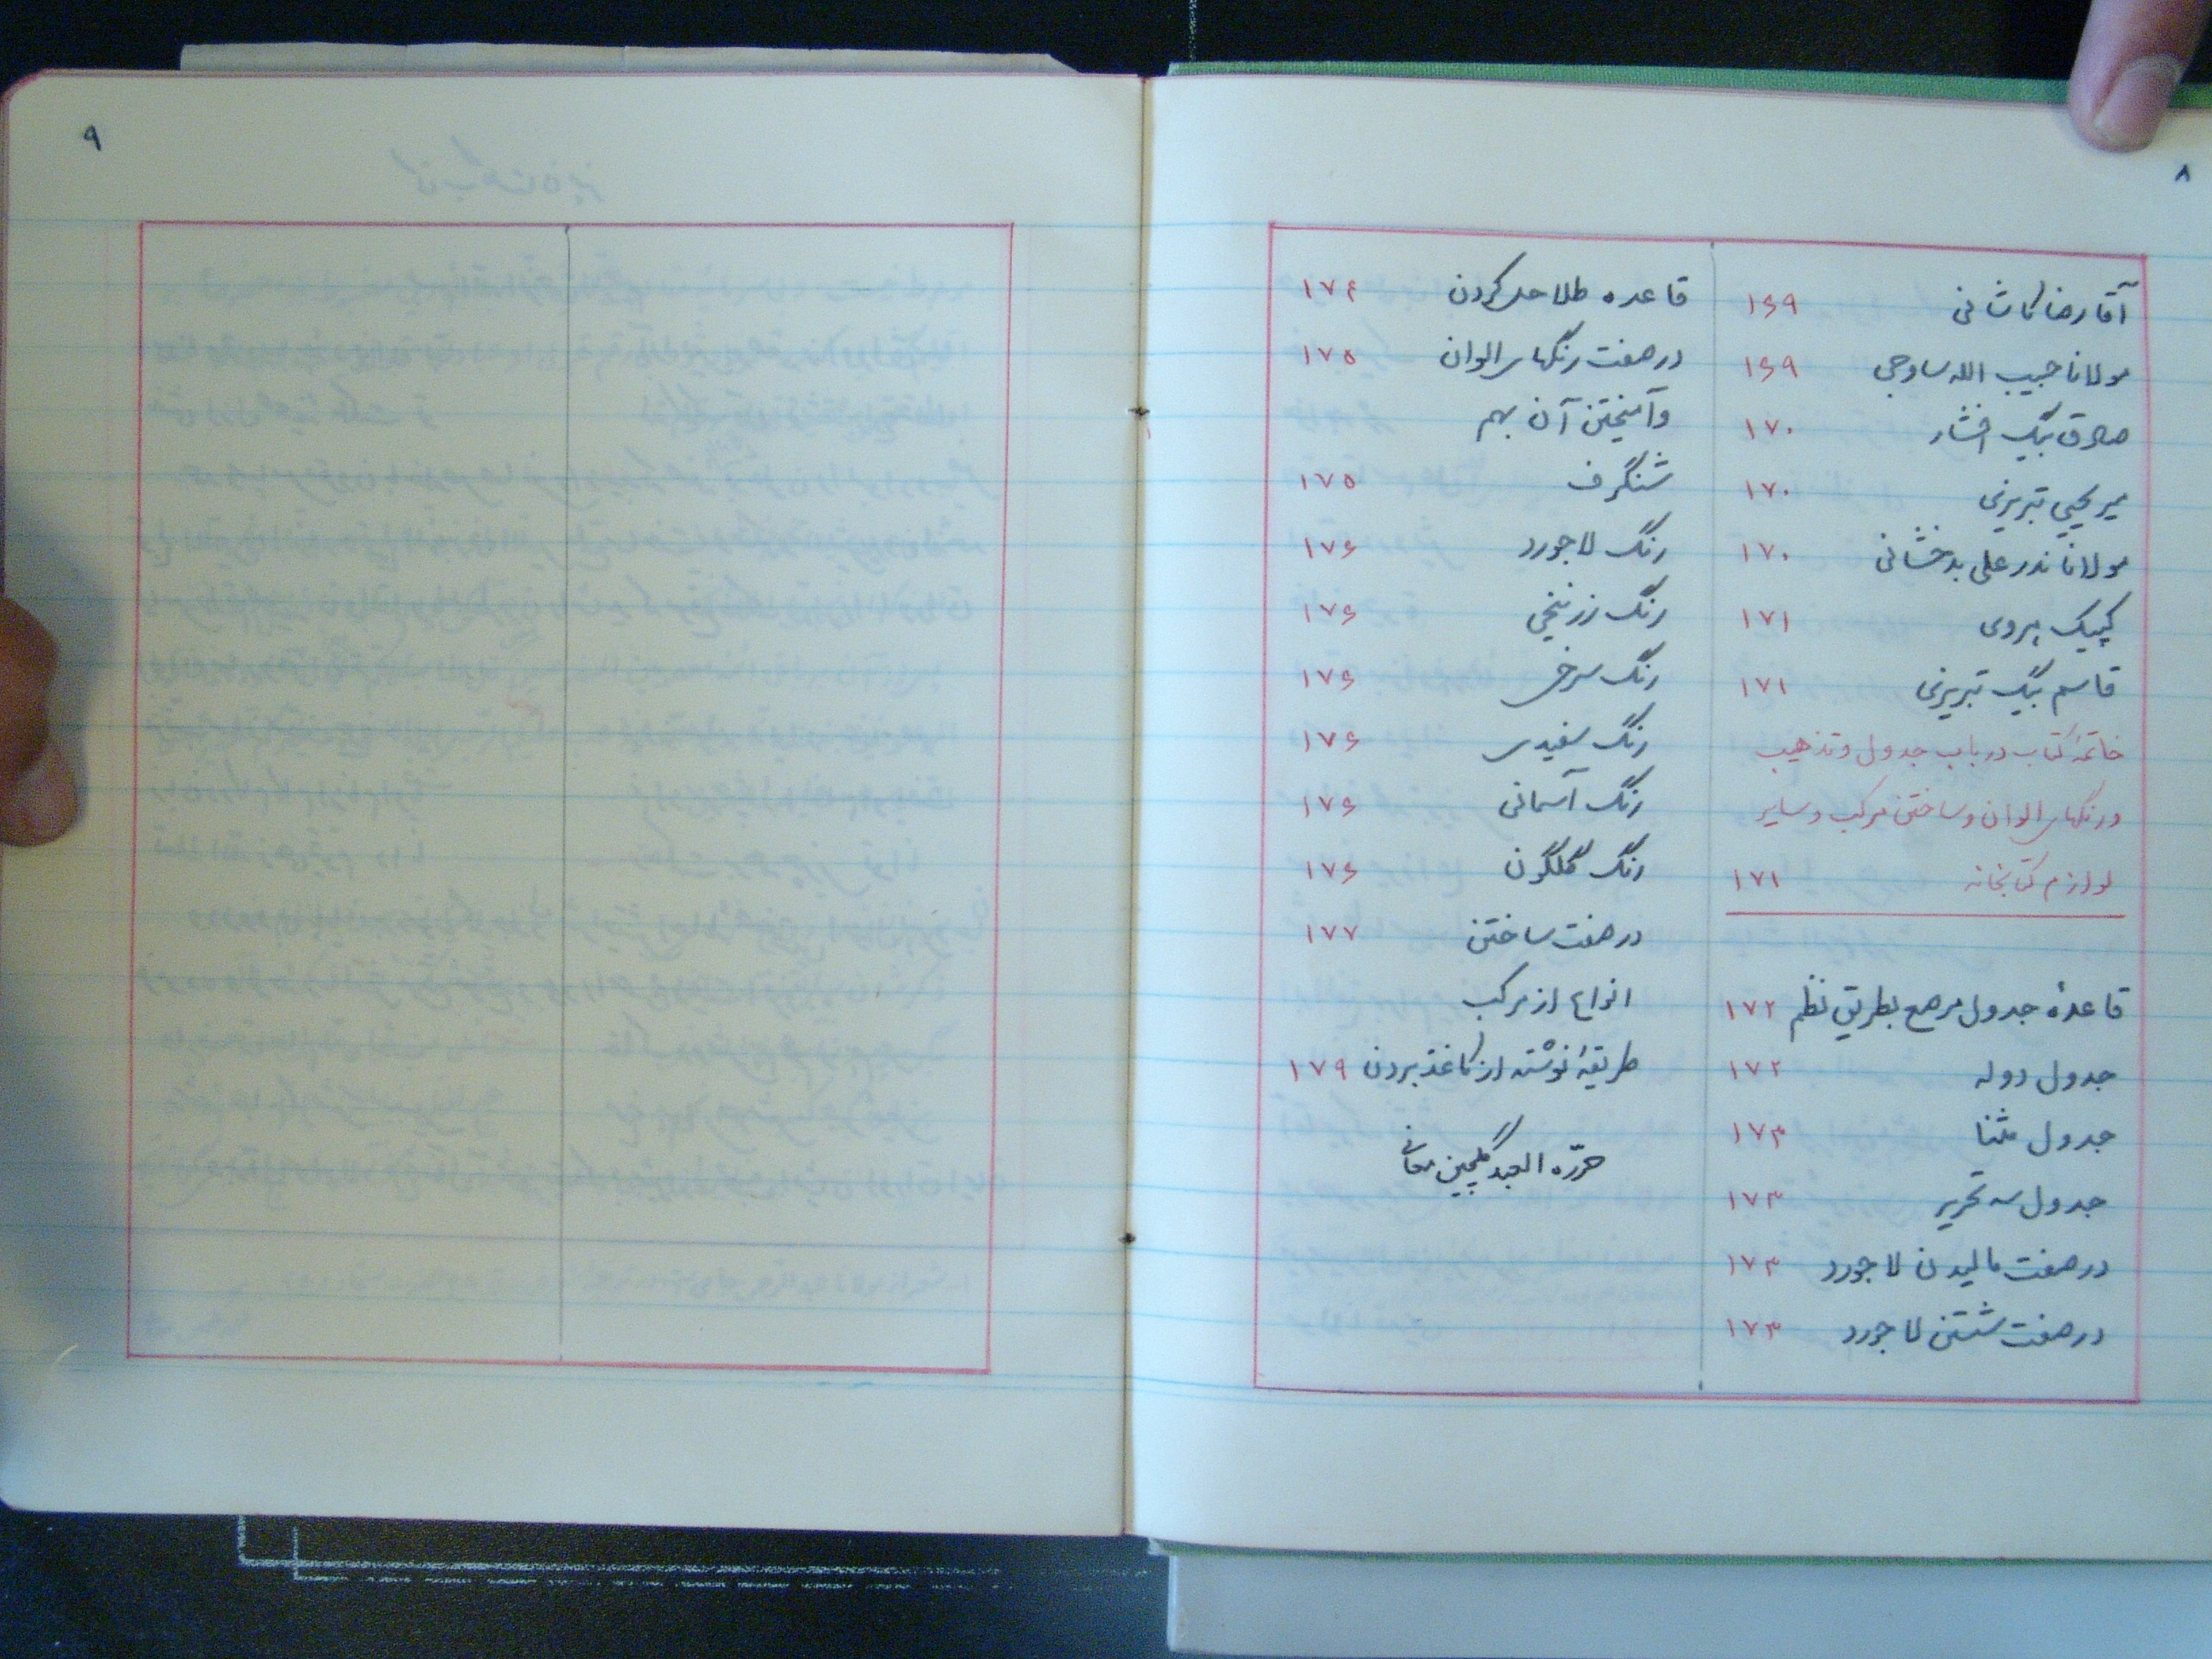 ۸
آقا رضا کاشانی ۱۶۹
مولانا حبیب الله ساوجی ۱۶۹
صادق بیگ افشار ۱۷۰
میر یحیی تبریزی ۱۷۰
مولانا نذر علی بدخشانی ۱۷۰
کپیک هروی ۱۷۱
قاسم بیگ تبریزی ۱۷۱
خاتمهٔ کتاب در باب جدول و تذهیب
و رنگهای الوان و ساختن مرکب و سایر
لوازم کتابخانه ۱۷۱
قاعدهٔ جدول مرصع بطریق نظم ۱۷۲
جدول دوله ۱۷۲
جدول مثنا ۱۷۳
جدول سه تحریر ۱۷۳
در صفت مالیدن لاجورد ۱۷۳
در صفت شستن لاجورد ۱۷۳
قاعده طلا حل کردن ۱۷۴
در صفت رنگهای الوان ۱۷۵
و آمیختن آن بهم
شنگرف ۱۷۵
رنگ لاجورد ۱۷۶
رنگ زرنیخی ۱۷۶
رنگ سرخی ۱۷۶
رنگ سفیدی ۱۷۶
رنگ آسمانی ۱۷۶
رنگ گلگون ۱۷۶
در صفت ساختن ۱۷۷
انواع از مرکب
طریقهٔ نوشته از کاغذ بردن ۱۷۹
حرّره العبد گلچین معانی
۹